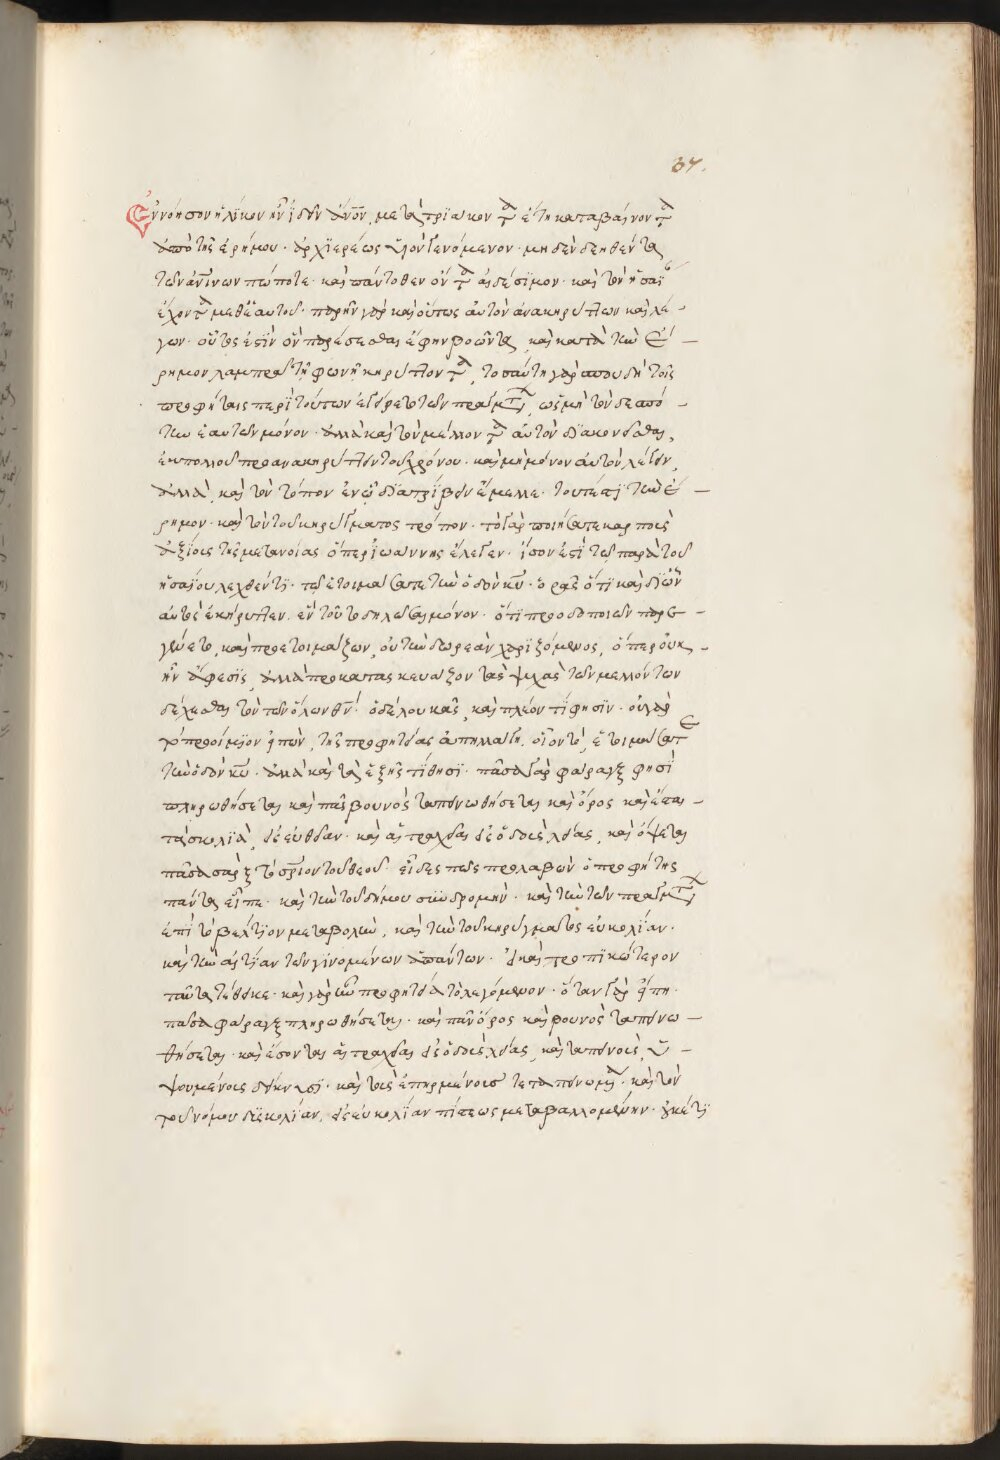 37.
Ἐννόησον ἡλίκον ἦν ἰδεῖν ἄνον, μετὰ τριάκοντα ἔτη καταβαίνοντα
ἀπὸ τῆς ἐρήμου· ἀρχιερέως υἱὸν γενόμενον· μηδὲν δεηθέντα
τῶν ἀνίνων πώποτε· καὶ πάντοθεν ὄντα αἰδέσιμον· καὶ τὸν ἡσαΐ
ἔχοντα μεθ' ἑαυτοῦ· παρῆν γὰρ καὶ οὗτος αὐτὸν ἀνακηρύττων καὶ λέ-
γων· οὗτός ἐστιν ὃν παρέσεσθαι ἔφην βοῶντα, καὶ κατὰ τὴν ἔ-
ρημον λαμπρᾶ τῆ φωνῆ κηρύττοντα, τοσαύτη γὰρ σπουδὴ τοῖς
προφήταις περὶ τούτων ἐγένετο τῶν πραγμάτων, ὡς μὴ τὸν δεσπό-
την ἑαυτῶν μόνον· ἀλλὰ καὶ τὸν μέλλοντα αὐτὸν διακονεῖσθαι,
ἐκ πολλοῦ προανακηρύττειν τοῦ χρόνου· καὶ μὴ μόνον αὐτὸν λέγειν,
ἀλλὰ, καὶ τὸν τόπον ἐν ὧ διατρίβειν ἔμελλε· τουτέστι τὴν ἔ-
ρημον· καὶ τὸν τοῦ κηρύγματος τρόπον· τὸ γὰρ ποιήσατε καρποὺς
ἀξίους τῆς μετανοίας ὅπερ ἰωάννης ἔλεγεν· ἴσον ἐστὶ τῶ παρὰ τοῦ
ἡσαΐου λεχθέντι· τῶ ἑτοιμάσατε τὴν ὁδὸν κυ· ὁρᾶς ὅτι καὶ δι' ὧν
αὐτὸς ἐκήρυττεν. ἓν τοῦτο δηλῶσαι μόνον· ὅτι προοδοποιῶν παρε-
γένετο, καὶ προετοιμάζων, οὐ τὴν δωρεὰν χαριζόμενος, ὅπερ οὐκ-
ἦν ἄφεσις, ἀλλὰ προκατασκευάζων τὰς ψυχὰς τῶν μελλόντων
δέχεσθαι τὸν τῶν ὅλων θν· ὁ δὲ λουκᾶς, καὶ πλέον τί φησιν· οὐ γὰρ
τὸ προοίμιον εἰπὼν, τῆς προφητείας ἀπηλλάγη. οἷον τὸ, ἑτοιμάσατε
τὴν ὁδὸν κυ· ἀλλὰ καὶ τὰ ἑξῆς τίθησι· πᾶσα γὰρ φάραγξ φησὶ
πληρωθήσεται καὶ πᾶς βουνὸς ταπεινωθήσεται καὶ ὄρος καὶ ἔσται-
τὰ σκολιὰ, εἰς εὐθεῖαν· καὶ αἱ τραχεῖαι εἰς ὁδοὺς λείας, καὶ ὄψεται
πᾶσα σὰρξ τὸ σριον τοῦ θεοῦ· εἶδες πῶς προλαβὼν ὁ προφήτης
πάντα εἶπε· καὶ τὴν τοῦ δήμου συνδρομὴν· καὶ τὴν τῶν πραγμάτων
ἐπὶ τὸ βέλτιον μεταβολὴν, καὶ τὴν τοῦ κηρύγματος εὐκολίαν·
καὶ τὴν αἰτίαν τῶν γινομένων ἁπάντων· εἰ καὶ τροπικώτερον
ταῦτα τέθεικε· καὶ γὰρ ἦν προφητεία τὸ λεγόμενον· ὅταν γὰρ εἴπη·
πᾶσα φάραγξ πληρωθήσεται· καὶ πᾶν ὄρος καὶ βουνὸς ταπεινω-
θήσεται· καὶ ἔσονται αἱ τραχεῖαι εἰς ὁδοὺς λείας, καὶ ταπεινοὺς, ὑ-
ψουμένους δείκνυσι· καὶ τοὺς ἐπηρμένους τεταπεινωμένους· καὶ τὴν
τοῦ νόμου δυσκολίαν, εἰς εὐκολίαν πίστεως μεταβαλλομένην· οὐκέτι